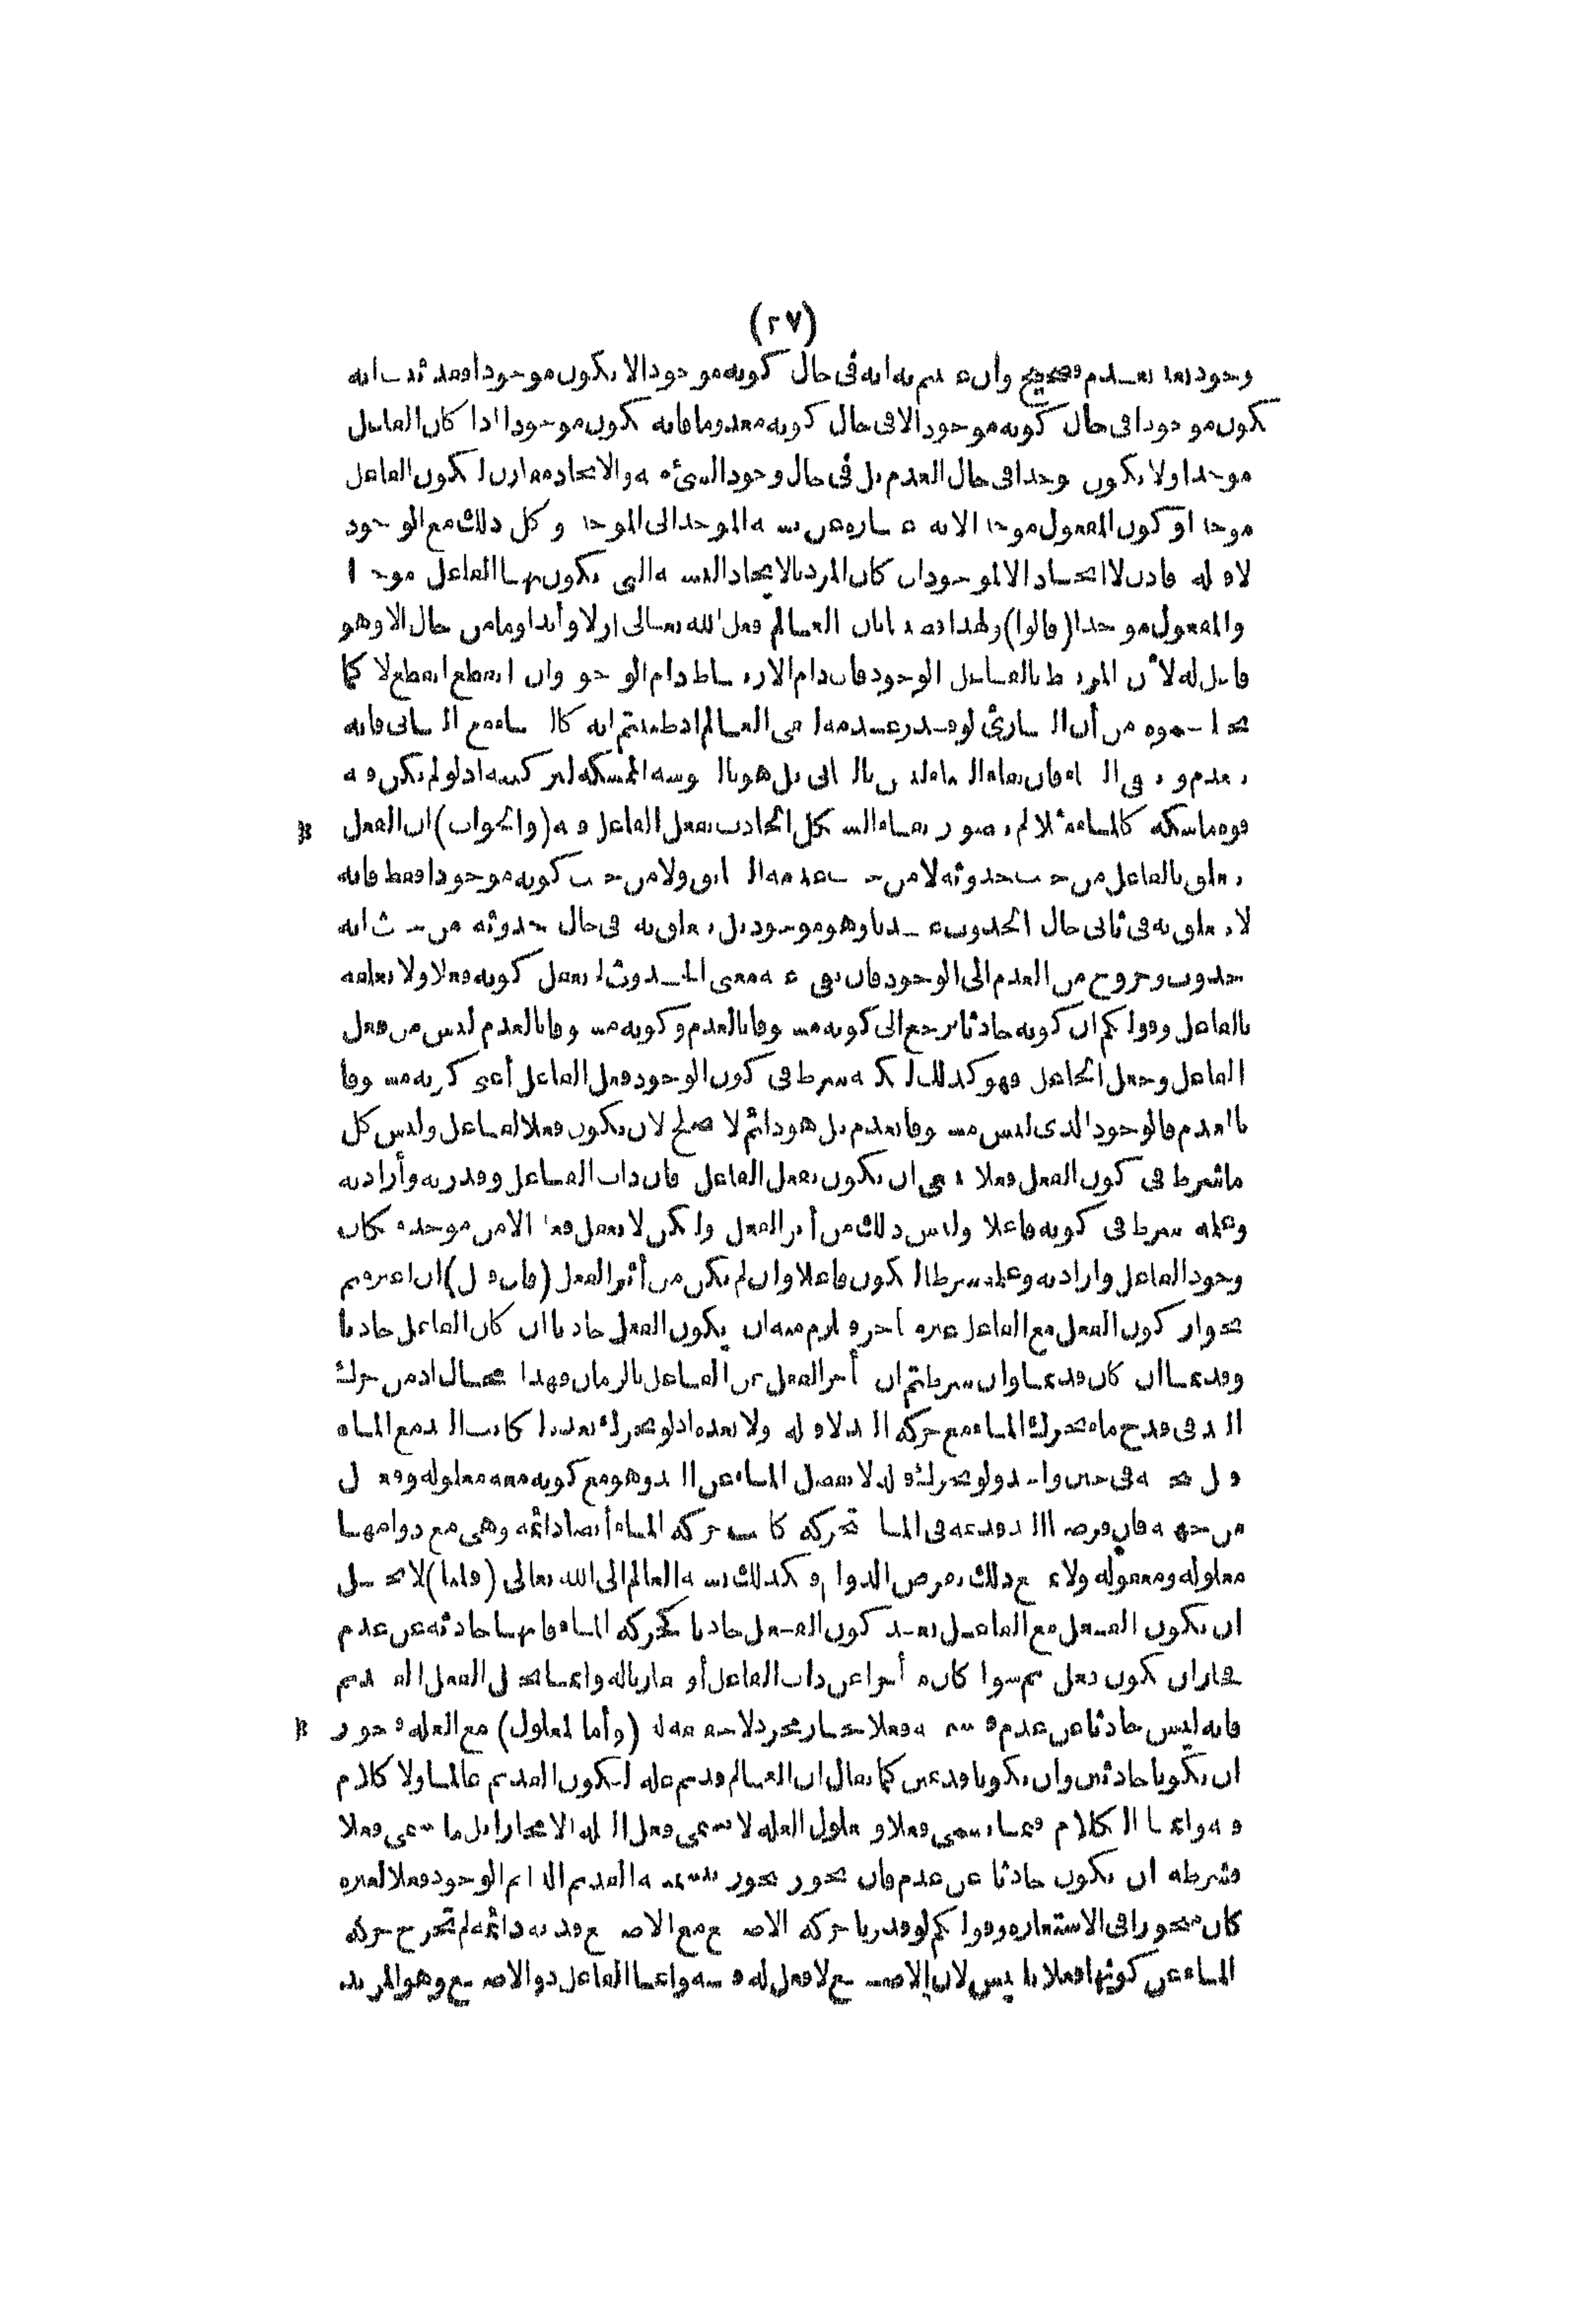 (٢٧)
وجود بعد عدم فصحيح وان عنيتم به انه فى حال كونه موجودا لا يكون موجودا فقد بينا انه
يكون موجودا فى حال كونه موجودا لا فى حال كونه معدوما فانه يكون موجودا اذا كان الفاعل
موجدا ولا يكون موجدا فى حال العدم بل فى حال وجود الشىء منه والايجاد مقارن لكون الفاعل
موجدا وكون المفعول موجدا لانه عبارة عن نسبة الموجد الى الموجد وكل ذلك مع الوجود
لا قبله فاذن لا ايجاد الا لموجود ان كان المراد بالايجاد النسبة التى يكون بها الفاعل موجدا
والمفعول موجدا (قالوا) ولهذا قضينا بان العالم فعل الله تعالى ازلا وأبدا وما من حال الا وهو
فاعل له لأن المرتبط بالفاعل الوجود فان دام الارتباط دام الوجود وان انقطع انقطع لا كما
تخيلتموه من أن البارئ لو قدر عدمه لبقى العالم اذ ظننتم انه كالبناء مع البانى فانه
ينعدم ويبقى البناء فان بقاء البناء ليس بالبانى بل هو باليبوسة الممسكة لتركيبه اذ لو لم يكن فيه
قوة ماسكة كالماء مثلا لم يتصور بقاء الشكل الحادث بفعل الفاعل فيه (والجواب) ان الفعل
يتعلق بالفاعل من حيث حدوثه لا من حيث عدمه السابق ولا من حيث كونه موجودا فقط فانه
لا يتعلق به فى ثانى حال الحدوث عندنا وهو موجود بل يتعلق به فى حال حدوثه من حيث انه
حدوث وخروج من العدم الى الوجود فان نفى عنه معنى الحدوث لم يعقل كونه فعلا ولا تعلقه
بالفاعل وقولكم ان كونه حادثا يرجع الى كونه مسبوقا بالعدم وكونه مسبوقا بالعدم ليس من فعل
الفاعل وجعل الجاعل فهو كذلك لكنه شرط فى كون الوجود فعل الفاعل أعنى كونه مسبوقا
بالعدم فالوجود الذى ليس مسبوقا بعدم بل هو دائم لا يصلح لان يكون فعلا لفاعل وليس كل
ما شرط فى كون الفعل فعلا ينبغى ان يكون بفعل الفاعل فان ذات الفاعل وقدرته وأرادته
وعلمه شرط فى كونه فاعلا وليس ذلك من أثر الفعل ولكن لا يعقل فعل الا من موجد فكان
وجود الفاعل وارادته وعلمه شرطا لكون فاعلا وان لم يكن من أثر الفعل (فان قيل) ان اعترفتم
بجواز كون الفعل مع الفاعل غير متأخر فيلزم منه ان يكون الفعل حادثا ان كان الفاعل حادثا
وقديما ان كان قديما وان شرطتم ان يتأخر الفعل عن الفاعل بالزمان فهذا محال اذ من حرك
اليد فى قدح ماء تحرك الماء مع حركة اليد لا قبله ولا بعده اذ لو تحرك بعدها لكانت اليد مع الماء
قبل تنحيه فى حيز واحد ولو تحرك قبله لانفصل الماء عن اليد وهو مع كونه معه معلوله وفعل
من جهته فان فرضنا اليد قديمة فى الماء متحركة كانت حركة الماء أيضا دائمة وهى مع دوامها
معلولة ومفعولة ولا يمتنع ذلك بفرض الدوام وكذلك نسبة العالم الى الله تعالى (قلنا) لا نحيل
ان يكون الفعل مع الفاعل بعد كون الفعل حادثا كحركة الماء فانها حادثة عن عدم
فجاز ان يكون فعل ثم سوا كان متأخرا عن ذات الفاعل أو مقارنا له وانما نحيل الفعل القديم
فانه ليس حادثا عن عدم فتسميته فعلا مجاز مجرد لا حقيقة له (وأما المعلول) مع العلة فيجوز
ان يكونا حادثين وان يكونا قديمين كما يقال ان العلم القديم علة لكون القديم عالما ولا كلام
فيه وانما الكلام فيما يسمى فعلا ومعلول العلة لا يسمى فعل العلة الا مجازا بل ما يسمى فعلا
فشرطه ان يكون حادثا عن عدم فان تجوز متجوز بتسمية القديم الدائم الوجود فعلا لغيره
كان متجوزا فى الاستعارة وقولكم لو قدرنا حركة الاصبع مع الاصبع قديمة دائمة لم تخرج حركة
الماء عن كونها فعلا تلبيس لان الاصبع لا فعل له فيه وانما الفاعل ذو الاصبع وهو المريد